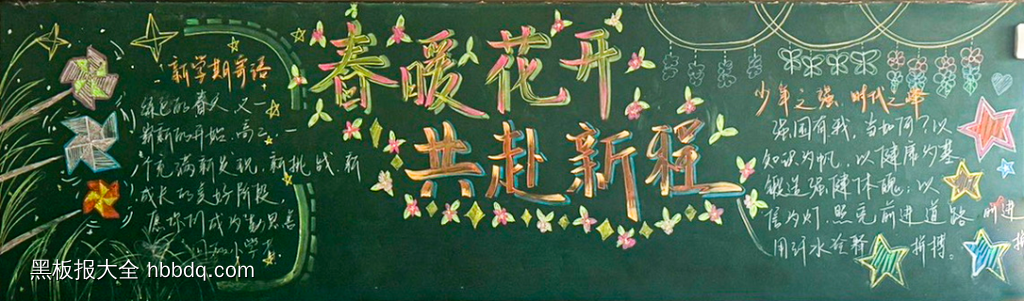 春暖花开
共赴新程
新学期寄语
绿色的春天,又一
崭新的开始,高二,一
个充满新发现,新挑战,新
成长的美好阶段,
愿你们成为勤思
少年之强,时代之
强国有我,当如何?以
知识为帆,以健康为基
锻造强健体魄;以
信为灯,照亮前进道路
用汗水诠释 拼搏。
黑板报大全 hbbdq.com